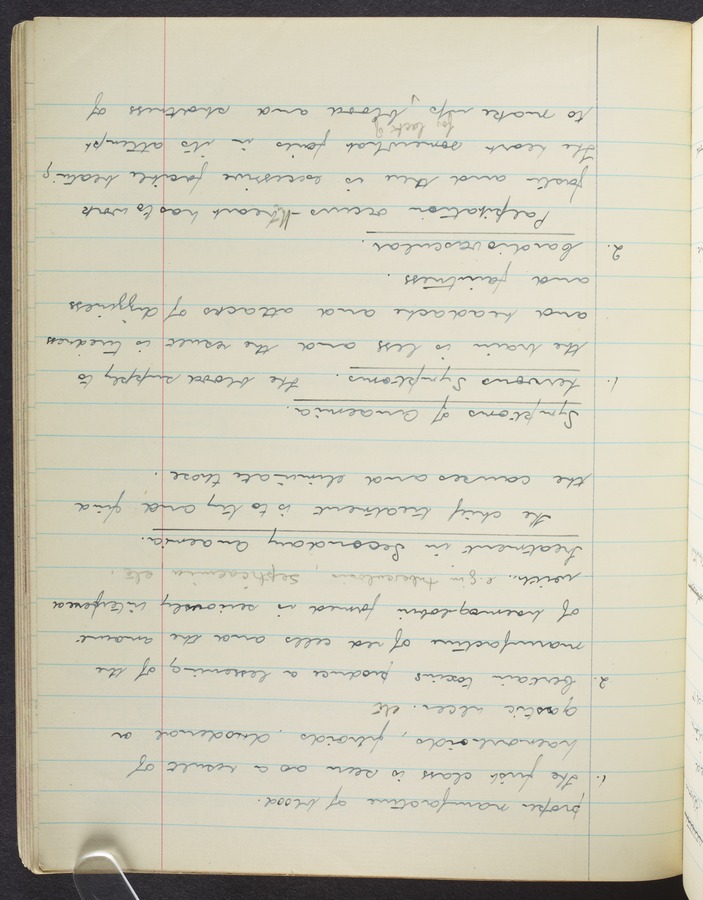 proper manufacture of blood.
1. The first class is seen as a result of
haemorrhoids, fibroids, duodenal or
gastric ulcer. etc
2. Certain toxins produce a lessening of the
manufacture of red cells and the amount
of haemoglobin formed is seriously interfered
with. e.g. in tuberculosis, septicaemia etc.
Treatment in Secondary Anaemia.
The chief treatment is to try and find
the causes and eliminate those.
Symptoms of Anaemia.
1. Nervous Symptoms. The blood supply to
the brain is less and the result is tiredness
and headache and attacks of dizziness
and faintness.
2. Cardiovascular.
Palpitation occurs - the heart has to work
faster and there is excessive forcible beating
The heart somewhat fails in its attempt
for lack of
to make up, blood and shortness of